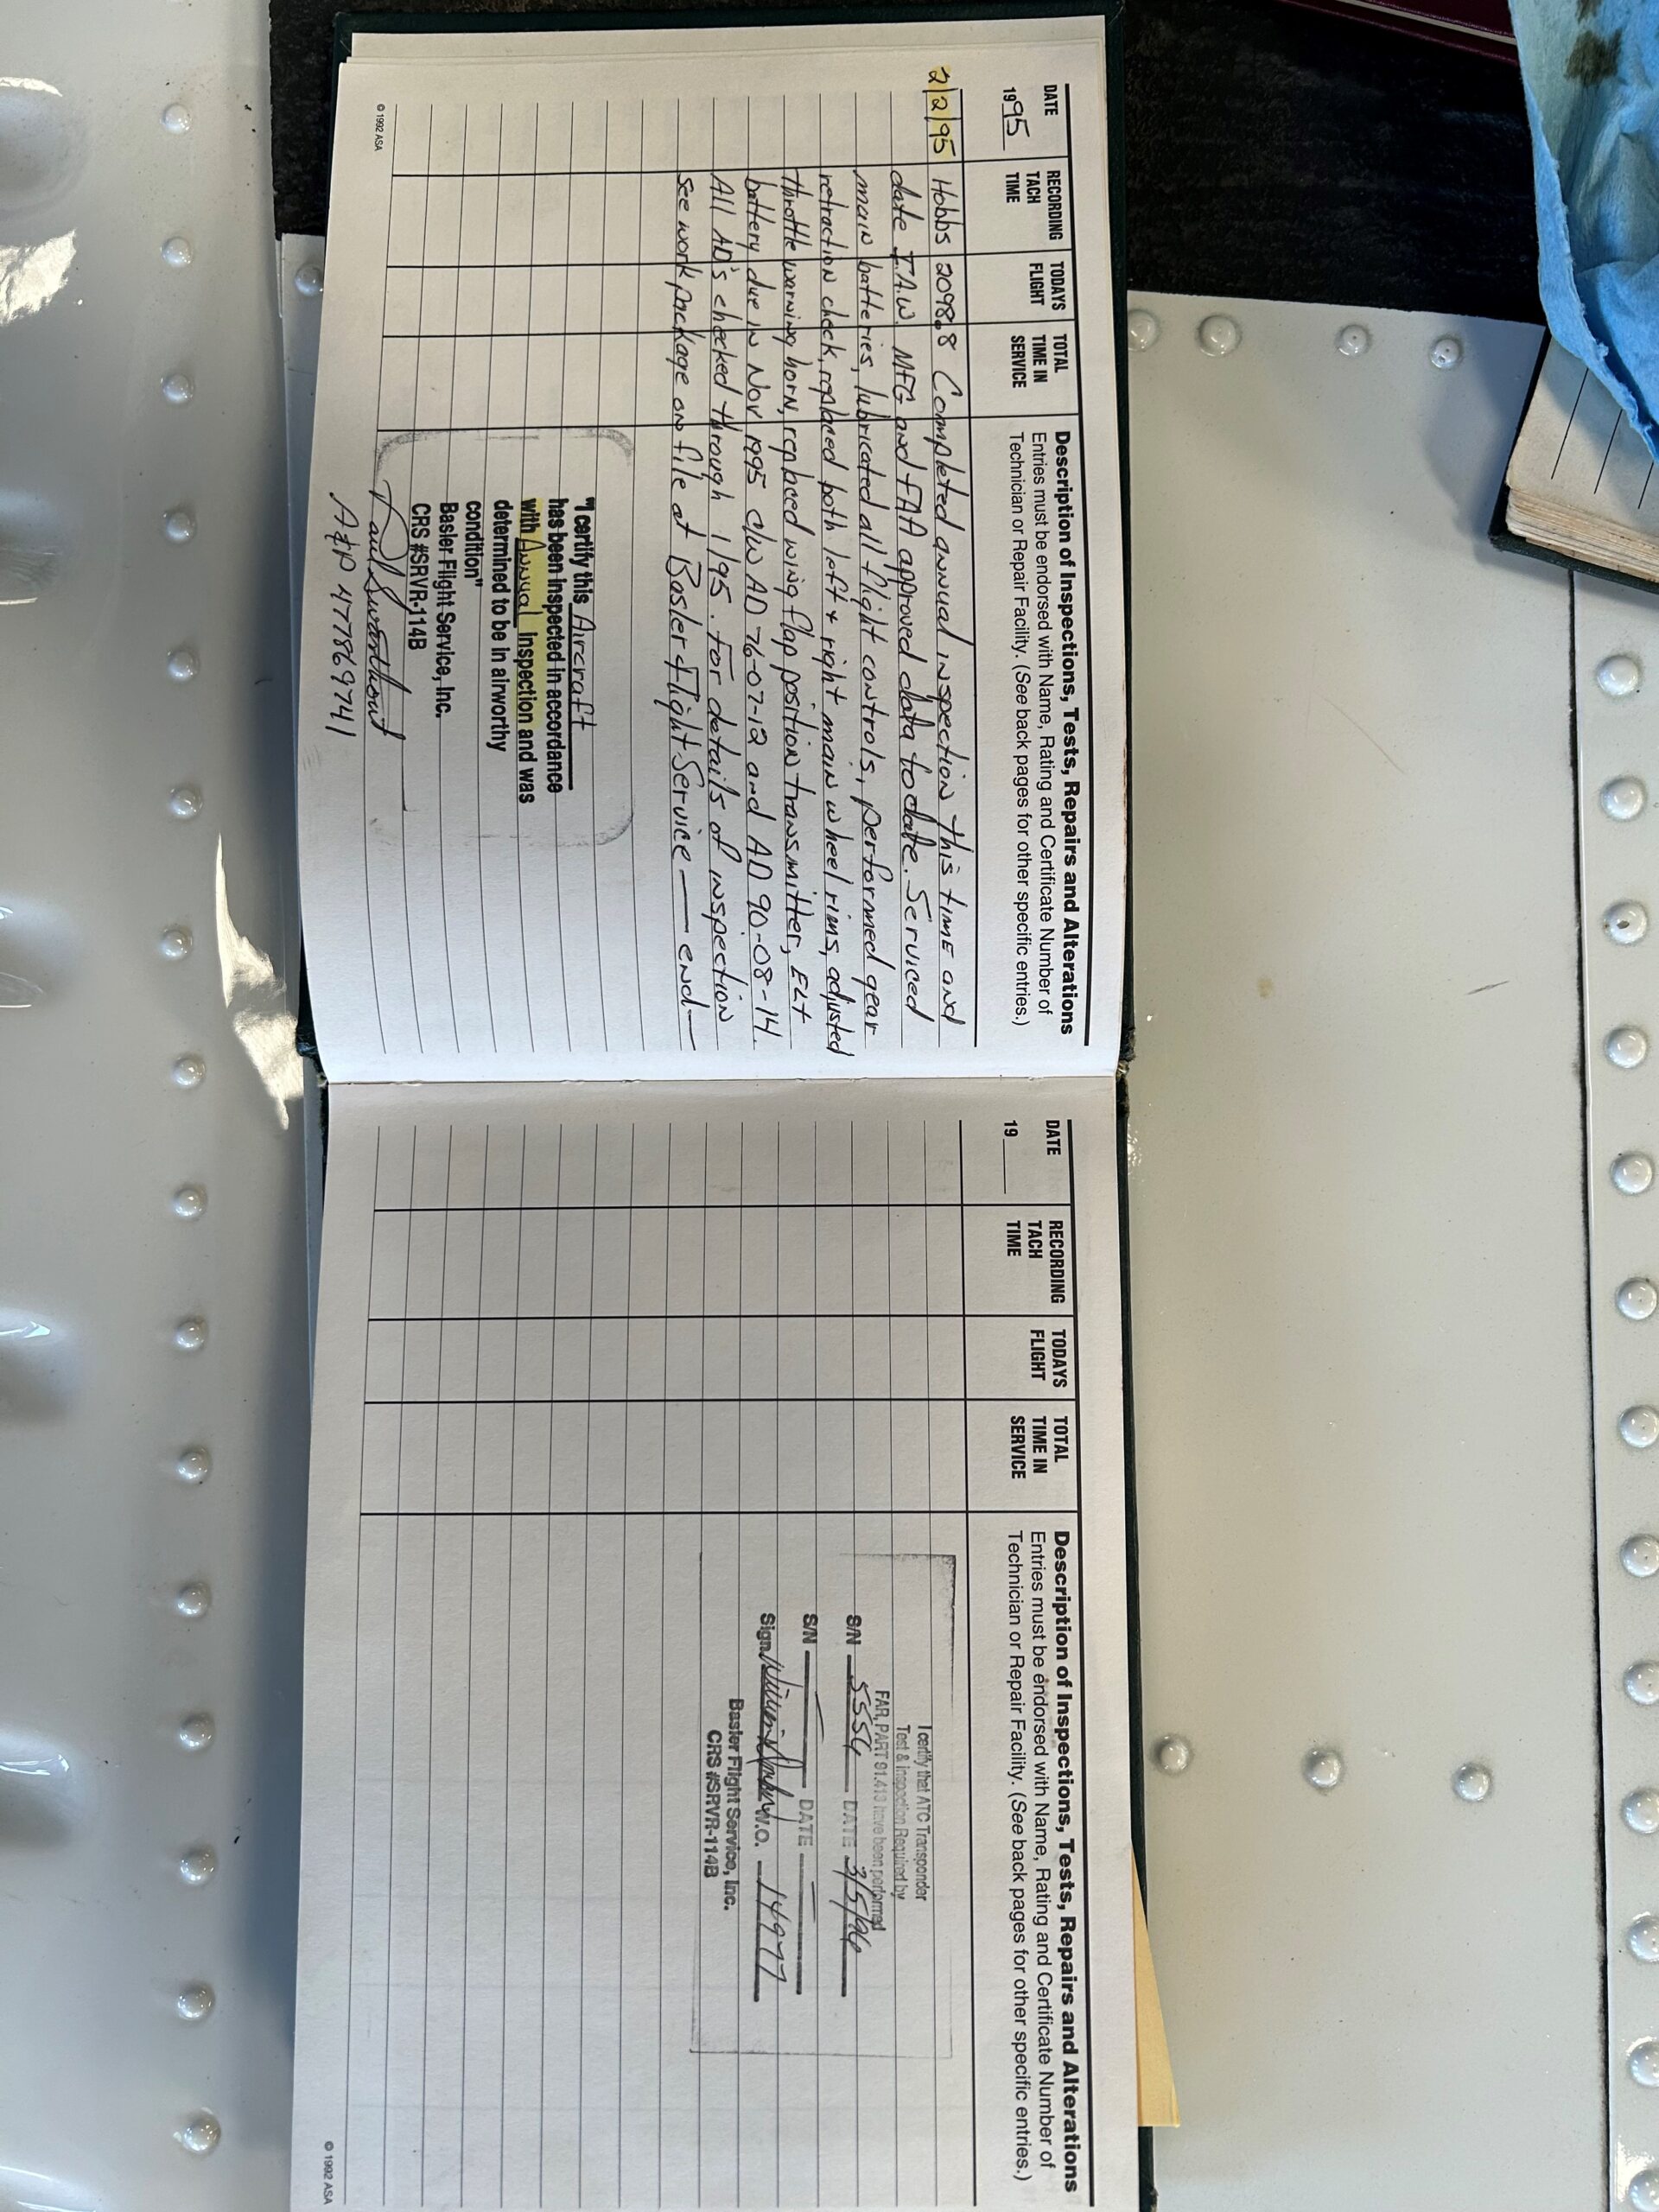 DATE
1995
RECORDING
TACH
TIME
TODAYS
FLIGHT
TOTAL
TIME IN
SERVICE
Description of Inspections, Tests, Repairs and Alterations
Entries must be endorsed with Name, Rating and Certificate Number of
Technician or Repair Facility. (See back pages for other specific entries.)
2/2/95 Hobbs 2098.8 Completed annual inspection this time and
date I.A.W. MFG and FAA approved data to date. Serviced
main batteries, lubricated all flight controls, performed gear
retraction check, replaced both left & right main wheel rims, adjusted
throttle warning horn, replaced wing flap position transmitter, ELT
battery due in Nov 1995 c/w AD 76-07-12 and AD 90-08-14.
All AD's checked through 1/95. For details of inspection
see work package on file at Basler Flight Service — end —
"I certify this Aircraft
has been inspected in accordance
with Annual inspection and was
determined to be in airworthy
condition"
Basler Flight Service, Inc.
CRS #SRVR-114B
Paul
A&P 477869741
© 1992 ASA
DATE
19
RECORDING
TACH
TIME
TODAYS
FLIGHT
TOTAL
TIME IN
SERVICE
Description of Inspections, Tests, Repairs and Alterations
Entries must be endorsed with Name, Rating and Certificate Number of
Technician or Repair Facility. (See back pages for other specific entries.)
I certify that ATC Transponder
Test & Inspection Required by
FAR, PART 91.413 have been performed
S/N 5554 DATE 3/5/96
S/N DATE
Sign W.O. 14977
Basler Flight Service, Inc.
CRS #SRVR-114B
© 1992 ASA